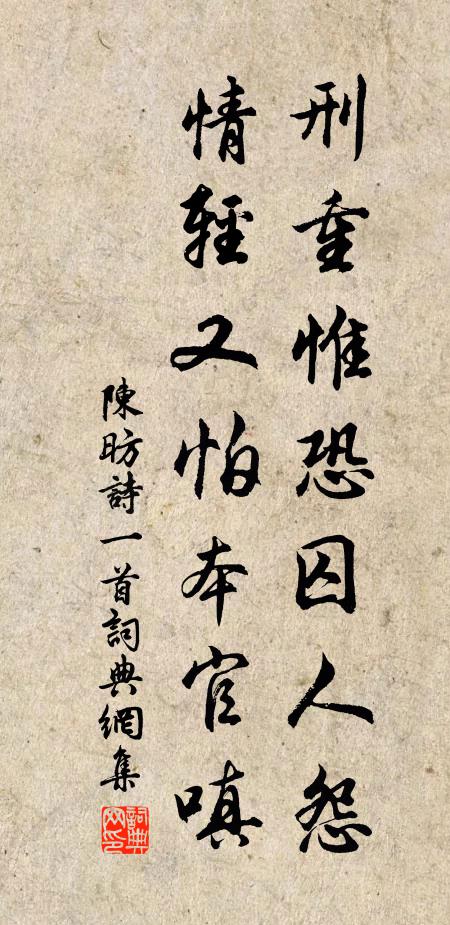 刑重惟恐囚人怨
情輕又怕本官嗔
陳昉詩一首詞典網集
詞典網印